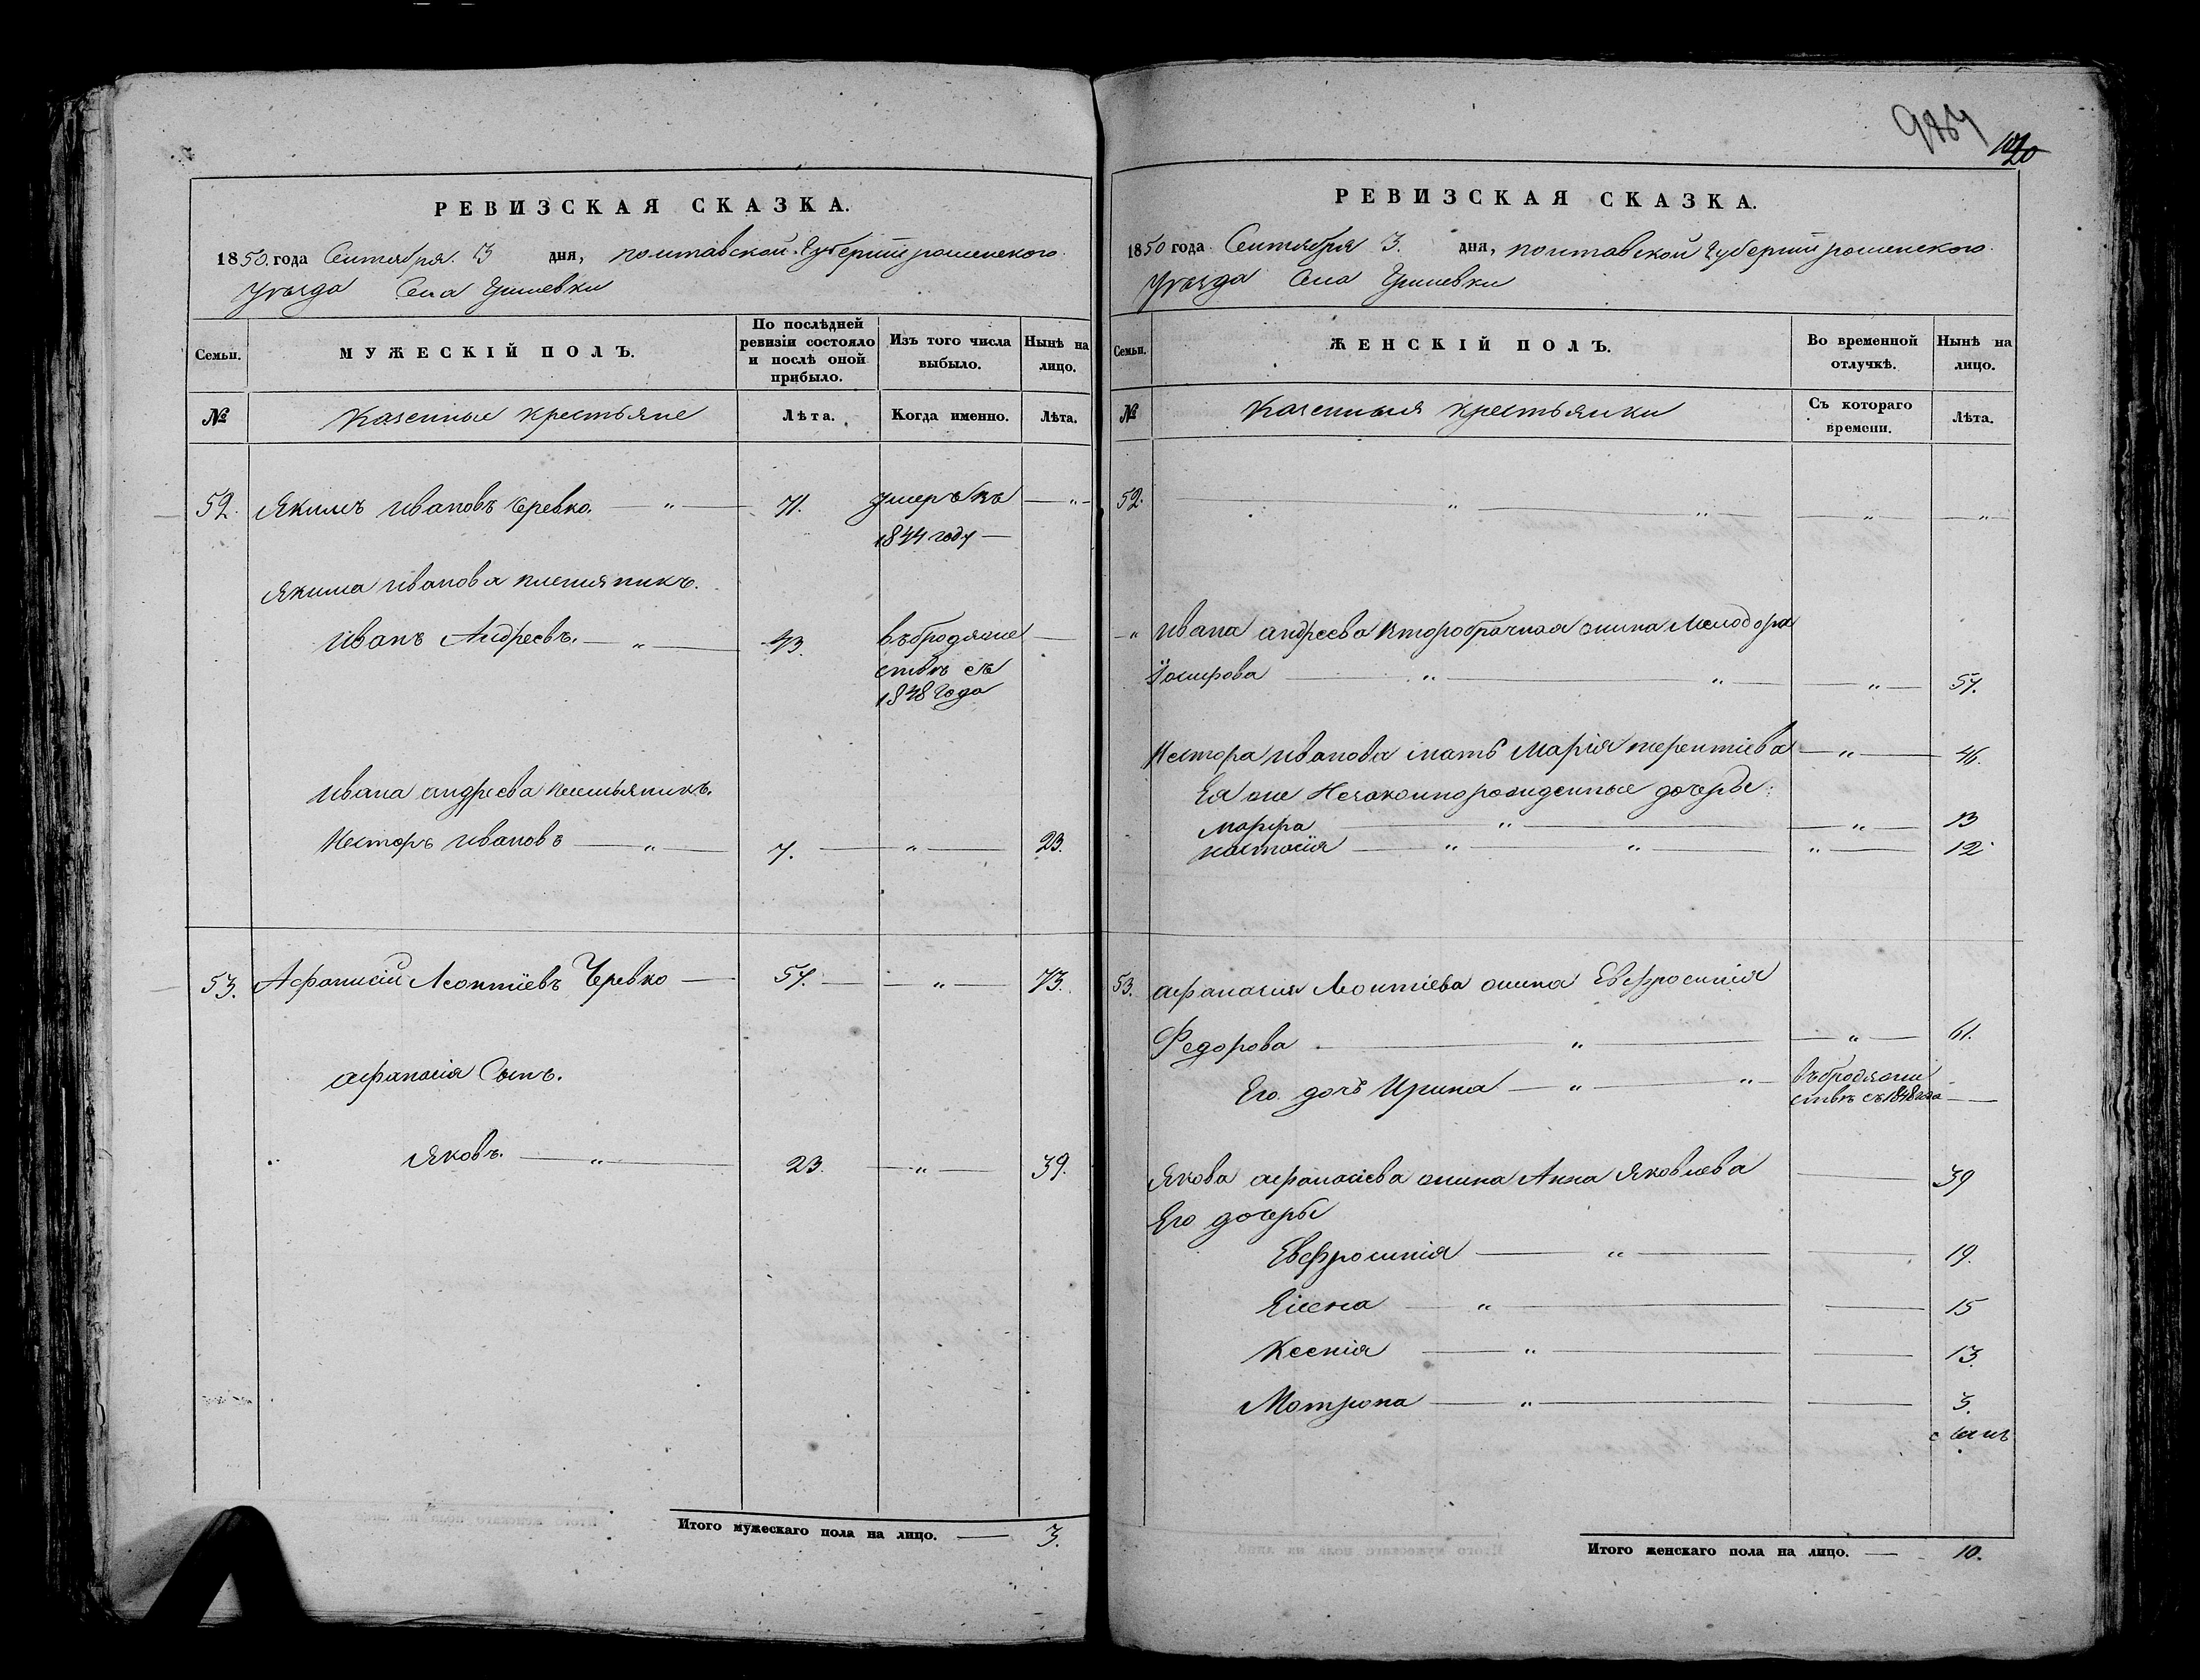 120
РЕВИЗСКАЯ СКАЗКА.
1850. года Сентября. 3 дня, полтавской. Губернии роменского
Уезда Села Гришевки
Семьи. МУЖЕСКІЙ ПОЛЪ. По послѣдней ревизіи состояло и послѣ оной прибыло. Изъ того числа выбыло. Нынѣ на лицо.
№ Казенные крестьяне Лѣта. Когда именно. Лѣта.
52. Якимъ Ивановъ Черевко. — " — 71. умеръ въ — " —
1844 году —
Якима Иванова племяникъ.
Иванъ Андреевъ. — " — 43. въ бродяже —
ствѣ съ
1848 года
Ивана андреева племяникъ.
Несторъ Ивановъ — " — 7. — " — 23.
53. Афанасій Леонтіевъ Черевко — 57. — " — 73.
афанасія Сынъ.
Яковъ. — " — 23. — " — 39.
Итого мужескаго пола на лицо. — 3.
РЕВИЗСКАЯ СКАЗКА.
1850 года Сентября 3. дня, полтавской губернии роменского
Уезда Села Гришевки
Семьи. ЖЕНСКІЙ ПОЛЪ. Во временной отлучкѣ. Нынѣ на лицо.
№ Казенныя крестьянки Съ котораго времени. Лѣта.
52. — " — " — " — " —
— " Ивана андреева второбрачная жина Мелодора
— " — " — " — 57.
Нестора Иванова мать Марія терентіева — " — 46.
Ея же Незаконнорожденные дочеры:
Марфа — " — " — 13
настасія — " — " — " — 12
53. афанасия Леонтіева жина Евфросинія
Федорова — " — " — 61.
Его дочъ Ирина — " — " — въ бродяжи —
ствѣ съ 1848 года —
Якова афанасіева жина Анна Яковлева — 39
Его дочеры
Евфросинія — " — 19.
Елена — " — 15
Ксенія — " — 13.
Мотрона — " — 3.
Итого женскаго пола на лицо. — 10.